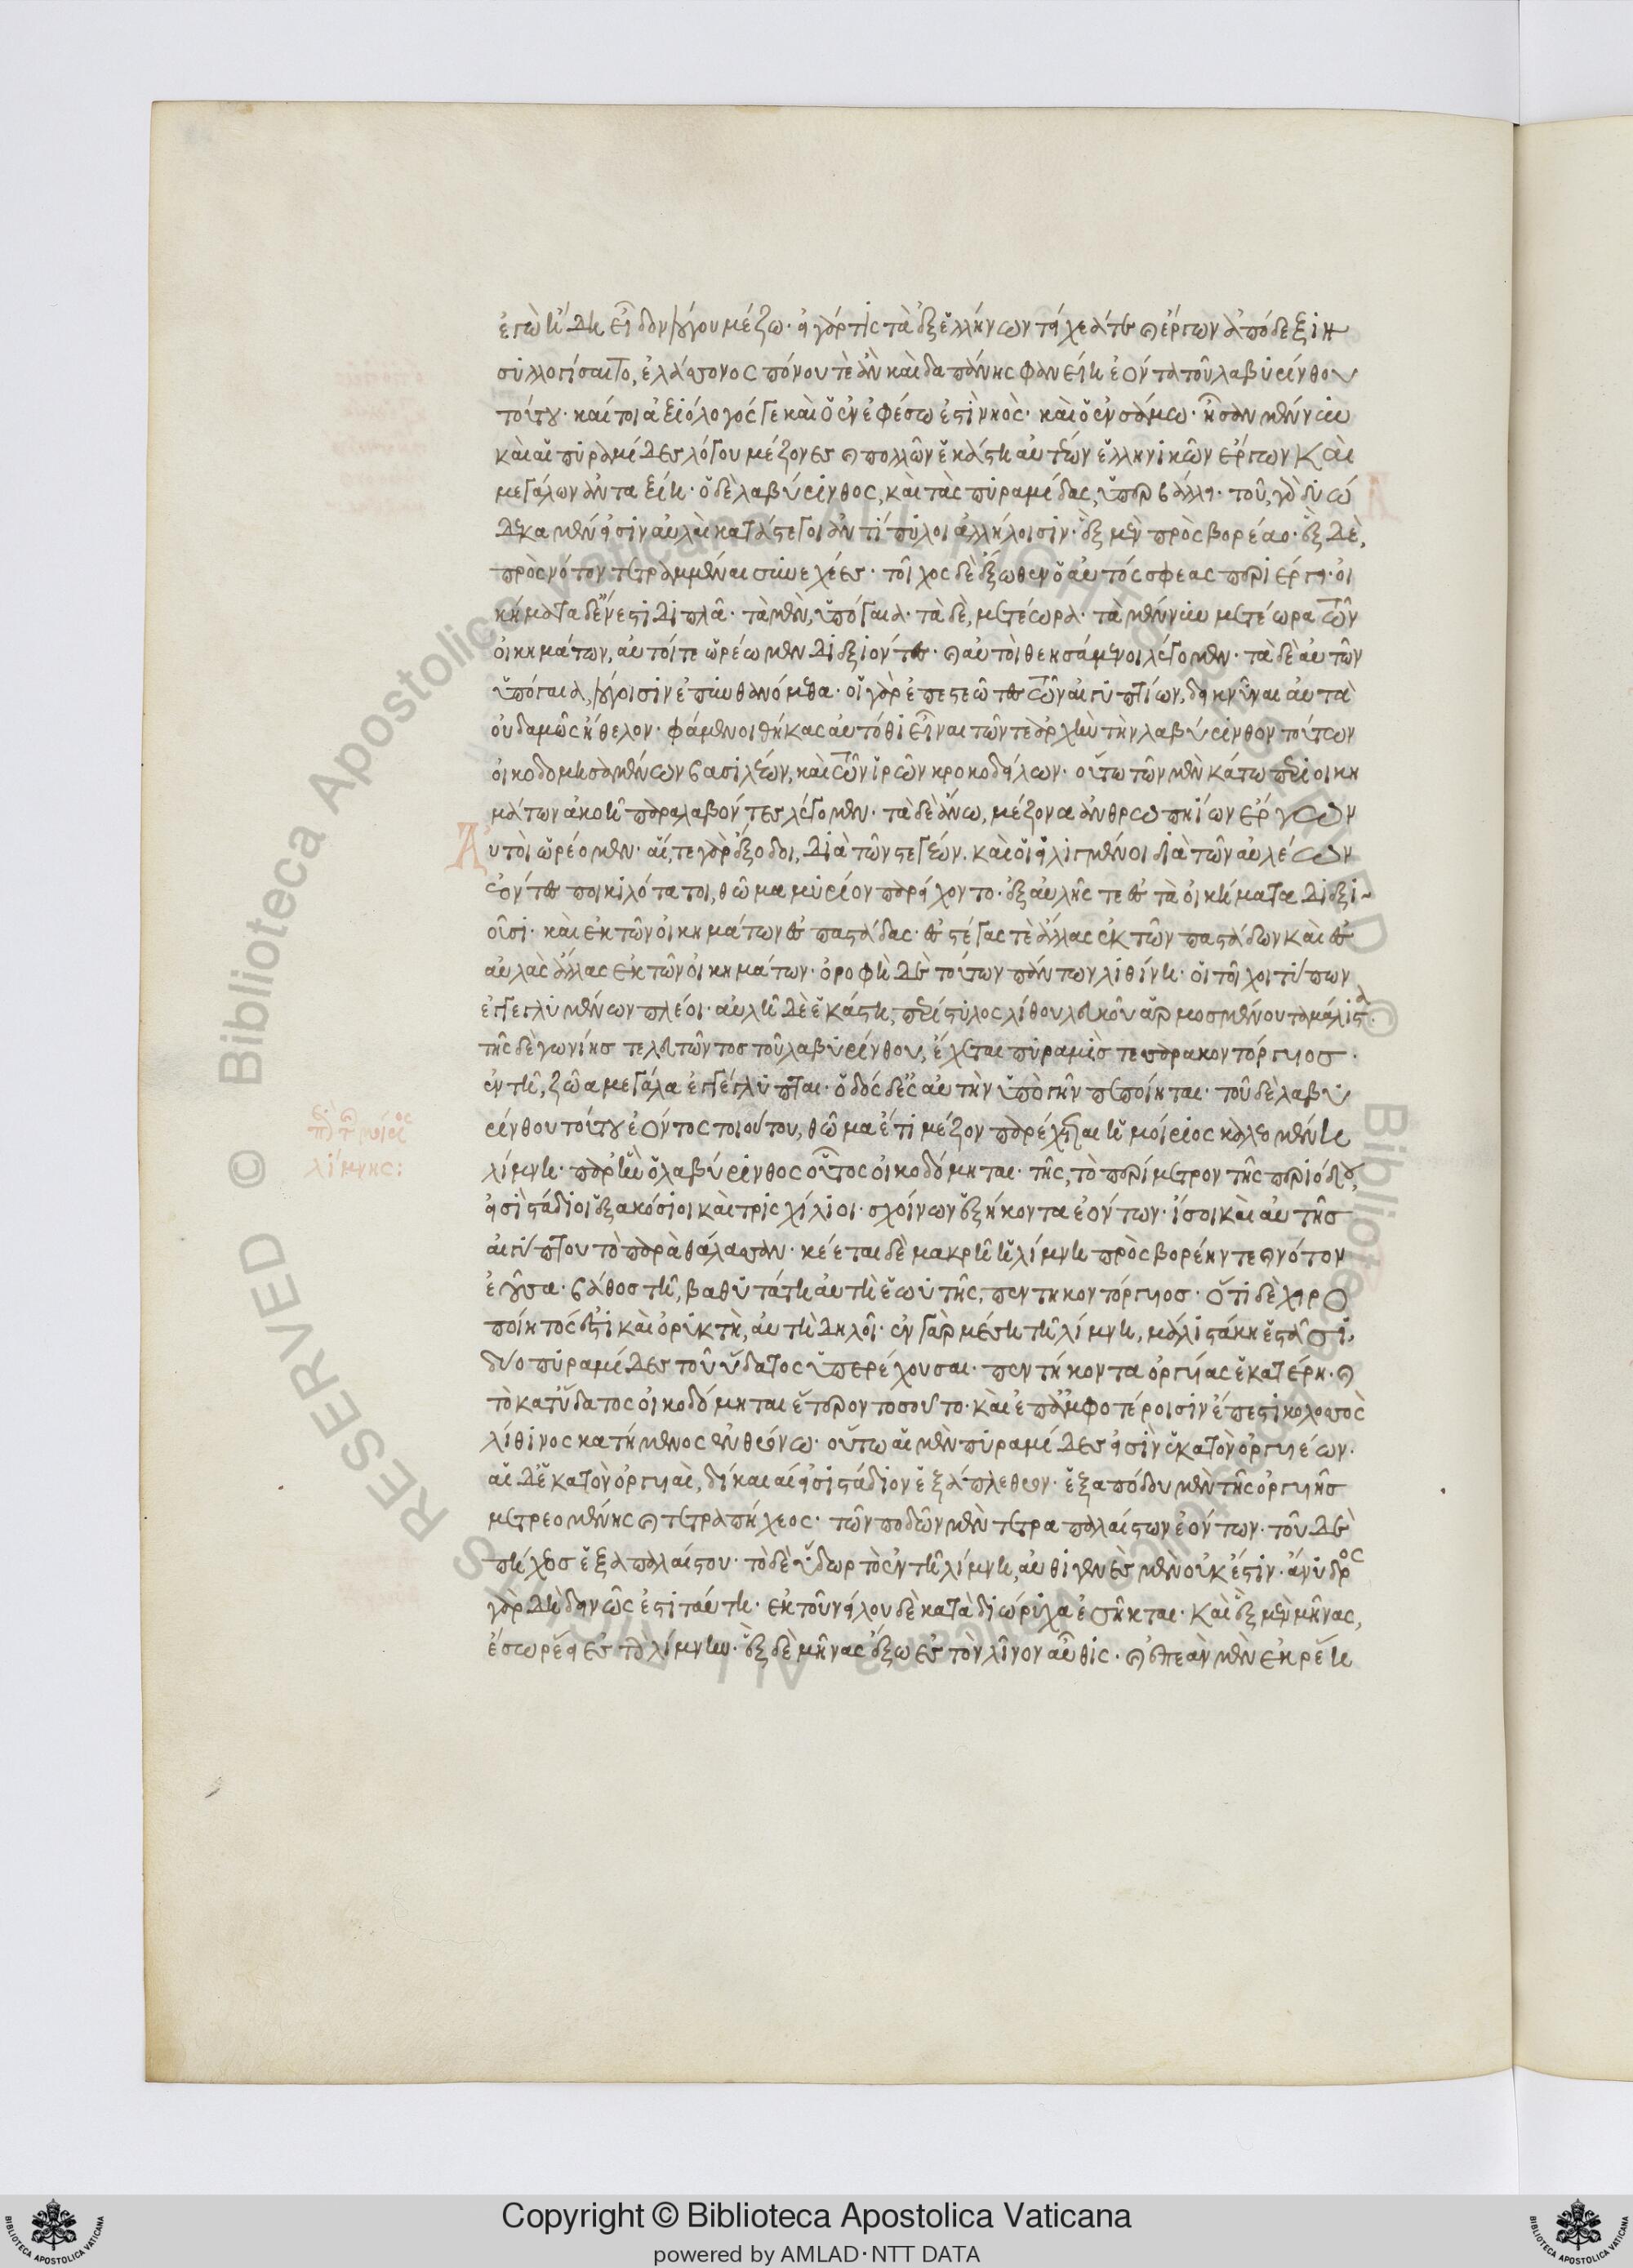 ἐγὼ ἤδη εἶδον λόγου μέζω· εἰ γάρ τις τὰ ἐξ ἑλλήνων τείχεά τε καὶ ἔργων ἀπόδεξιν
συλλογίσαιτο, ἐλάσσονος πόνου τὲ ἂν καὶ δαπάνης φανείη ἐόντα τοῦ λαβυρίνθου
τούτου· καίτοι ἀξιόλογός γε καὶ ὁ ἐν ἐφέσω ἐστὶ νηὸς· καὶ ὁ ἐν σάμω· ἦσαν μέν νυν
καὶ αἱ πυραμίδες λόγου μέζονες καὶ πολλῶν ἑκάστη αὐτέων ἑλληνικῶν ἔργων καὶ
μεγάλων ἀνταξίη· ὁ δὲ λαβύρινθος, καὶ τὰς πυραμίδας, ὑπερβάλλει· τοῦ, γὰρ δυώ
δεκα μέν εἰσιν αὐλαὶ κατάστεγοι ἀντίπυλοι ἀλλήλοισιν· ἓξ μὲν πρὸς βορέαο· ἓξ δὲ,
πρὸς νότον τετραμμέναι συνεχέες· τοῖχος δὲ ἔξωθεν ὁ αὐτός σφεας περιέργει· οἰ
κήματα δ' ἔνεστι διπλᾶ· τὰ μὲν, ὑπόγαια· τὰ δὲ, μετέωρα· τὰ μέν νυν μετέωρα τῶν
οἰκημάτων, αὐτοί τε ὡρέωμεν διεξιόντες· καὶ αὐτοὶ θεησάμενοι λέγομεν· τὰ δὲ αὐτῶν
ὑπόγαια, λόγοισιν ἐπυνθανόμεθα· οἱ γὰρ ἐπεστεῶτες τῶν αἰγυπτίων, δεικνύναι αὐτὰ
οὐδαμῶς ἤθελον· φάμενοι θήκας αὐτόθι εἶναι τῶν τε ἀρχὴν τὴν λαβύρινθον τούτων
οἰκοδομησαμένων βασιλέων, καὶ τῶν ἱρῶν κροκοδείλων· οὕτω τῶν μὲν κάτω περὶ οἰκη
μάτων ἀκοῆ παραλαβόντες λέγομεν· τὰ δὲ ἄνω, μέζονα ἀνθρωπηίων ἔργων
Αὐτοὶ ὡρέομεν· αἵ, τε γὰρ ἔξοδοι, διὰ τῶν στεγέων. καὶ οἱ εἱλιγμένοι διὰ τῶν αὐλέων
ἐόντες ποικιλότατοι, θῶμα μυρίον παρείχοντο· ἐξ αὐλῆς τε ἐς τὰ οἰκήματα διεξι
οῦσι· καὶ ἐκ τῶν οἰκημάτων ἐς παστάδας· ἐς στέγας τὲ ἄλλας ἐκ τῶν παστάδων καὶ ἐς
αὐλὰς ἄλλας ἐκ τῶν οἰκημάτων· ὀροφὴ δὲ τούτων πάντων λιθίνη· οἱ τοῖχοι τύπων
ἐγγεγλυμένων πλέοι· αὐλὴ δὲ ἑκάστη, περίστυλος λίθου λευκοῦ ἁρμοσμένου τὰ μάλιστα·
τῆς δὲ γωνίης τελευτῶντος τοῦ λαβυρίνθου, ἔχεται πυραμὶς τεσσαρακοντόργυιος·
ἐν τῆ, ζῶα μεγάλα ἐγγέγλυπται· ὁδός δ' ἐς αὐτὴν ὑπὸ γῆν πεποίηται· τοῦ δὲ λαβυ
ρίνθου τούτου ἐόντος τοιούτου, θῶμα ἔτι μέζον παρέχεται ἡ μοίριος καλεομένη
λίμνη· παρ' ἣν ὁ λαβύρινθος οὗτος οἰκοδόμηται· τῆς, τὸ περίμετρον τῆς περιόδου,
εἰσὶ στάδιοι ἑξακόσιοι καὶ τρισχίλιοι· σχοίνων ἑξήκοντα ἐόντων· ἴσοι καὶ αὐτῆς
αἰγύπτου τὸ παρὰ θάλασσαν· κέεται δὲ μακρὴ ἡ λίμνη πρὸς βορέην τε καὶ νότον
ἐοῦσα· βάθος τῆ, βαθυτάτη αὐτὴ ἑωυτῆς, πεντηκοντόργυιος· ὅτι δὲ χειρο
ποίητός ἐστι καὶ ὀρυκτὴ, αὐτὴ δηλοῖ· ἐν γὰρ μέση τῆ λίμνη, μάλιστά κη ἑστᾶσι,
δύο πυραμίδες τοῦ ὕδατος ὑπερέχουσαι· πεντήκοντα ὀργυίας ἑκατέρη· καὶ
τὸ κατ' ὕδατος οἰκοδόμηται ἕτερον τοσοῦτο· καὶ ἐπ' ἀμφοτέροισιν ἔπεστι κολοσσὸς
λίθινος κατήμενος ἐν θρόνω· οὕτω αἱ μὲν πυραμίδες εἰσὶν ἑκατὸν ὀργυιέων·
αἱ δ' ἑκατὸν ὀργυιαὶ, δίκαιαί εἰσι στάδιον ἑξάπλεθρον· ἑξαπόδου μὲν τῆς ὀργυιῆς
μετρεομένης καὶ τετραπήχεος· τῶν ποδῶν μὲν τετραπαλαίστων ἐόντων· τοῦ δὲ
πήχεος ἑξαπαλαίστου· τὸ δὲ ὕδωρ τὸ ἐν τῆ λίμνη, αὐθιγενὲς μὲν οὐκ ἔστιν· ἄνυδρος
γὰρ δὴ δεινῶς ἐστι ταύτη· ἐκ τοῦ νείλου δὲ κατὰ διώρυχα ἐσῆκται· καὶ ἓξ μὲν μῆνας,
ἔσω ῥέει ἐς τὴν λίμνην· ἓξ δὲ μῆνας ἔξω ἐς τὸν λῖνον αὖθις· καὶ ἐπεὰν μὲν ἐκρέῃ
περὶ τῆς μοίριος
λίμνης:
Copyright © Biblioteca Apostolica Vaticana
powered by AMLAD·NTT DATA